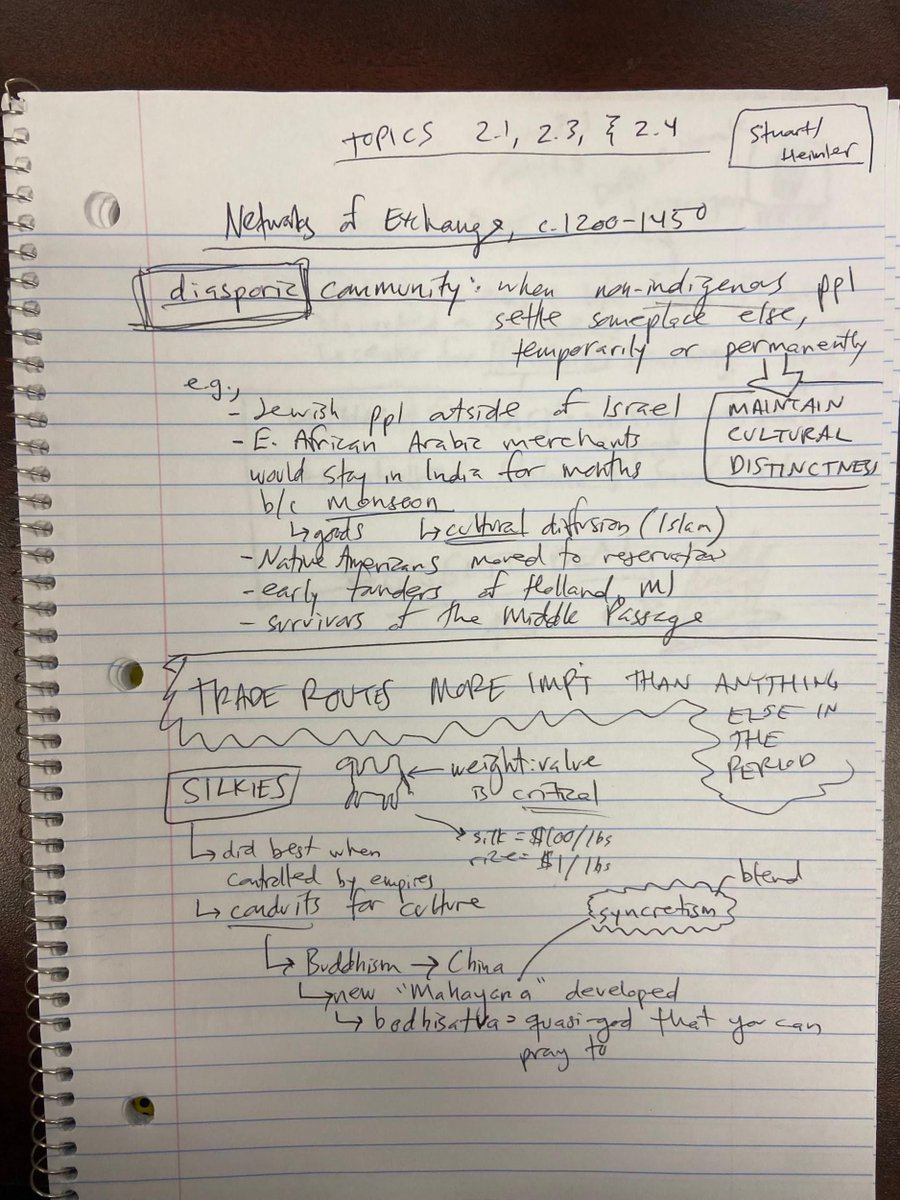 TOPICS 2.1, 2.3, & 2.4
Stuart/
Heimler
Networks of Exchange, c.1200-1450
diasporic community: when non-indigenous ppl
settle someplace else,
temporarily or permanently
MAINTAIN
CULTURAL
DISTINCTNESS
e.g.,
- Jewish ppl outside of Israel
- E. African Arabic merchants
would stay in India for months
b/c monsoon
↳ goods ↳ cultural diffusion (Islam)
- Native Americans moved to reservation
- early founders of Holland, MI
- survivors of the Middle Passage
TRADE ROUTES MORE IMPT THAN ANYTHING
ELSE IN
THE
PERIOD
SILKIES
← weight:value
is critical
→ silk = $100/lbs
rice = $1/lbs
↳ did best when
controlled by empires
↳ conduits for culture
blend
syncretism
↳ Buddhism → China
↳ new "Mahayana" developed
↳ bodhisatva = quasi-god that you can
pray to